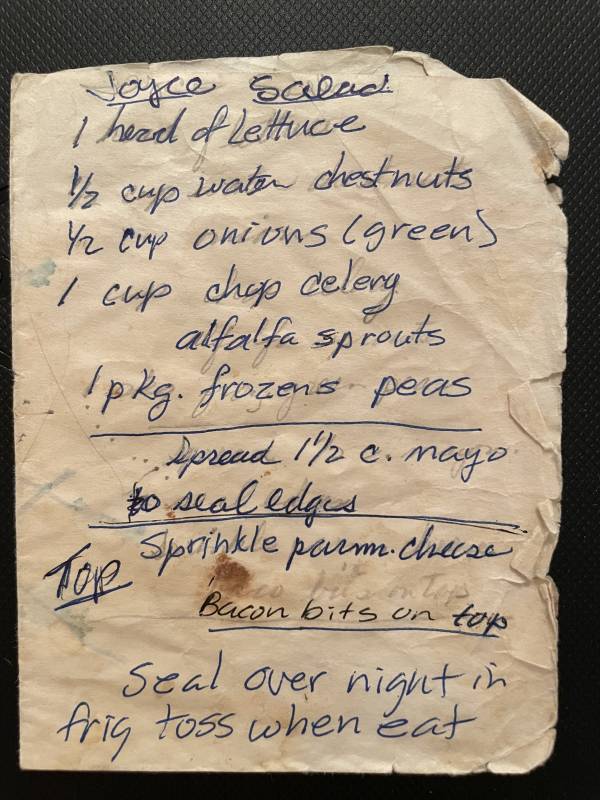 Joyce Salad
1 head of Lettuce
1/2 cup water chestnuts
1/2 cup onions (green)
1 cup chop celery
alfalfa sprouts
1 pkg. frozens peas
Spread 1 1/2 c. mayo
to seal edges
Sprinkle parm. cheese
Top
Bacon bits on top
Seal over night in
frig toss when eat